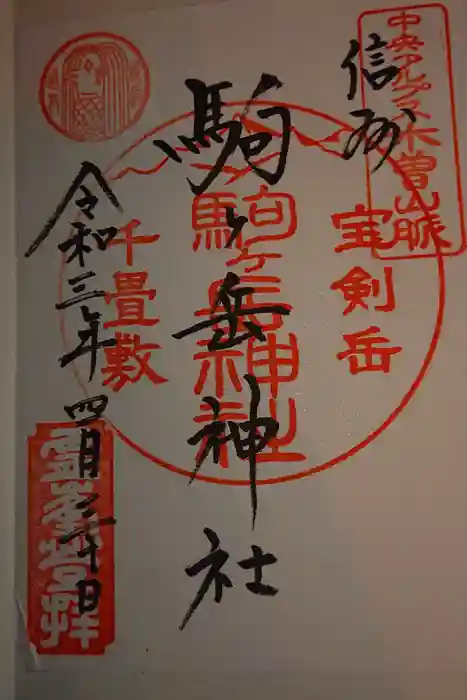 中央アルプス木曽山脈
信州
宝剣岳
駒ヶ岳神社
駒ヶ岳神社
千畳敷
令和三年四月三十日
霊峯登拝